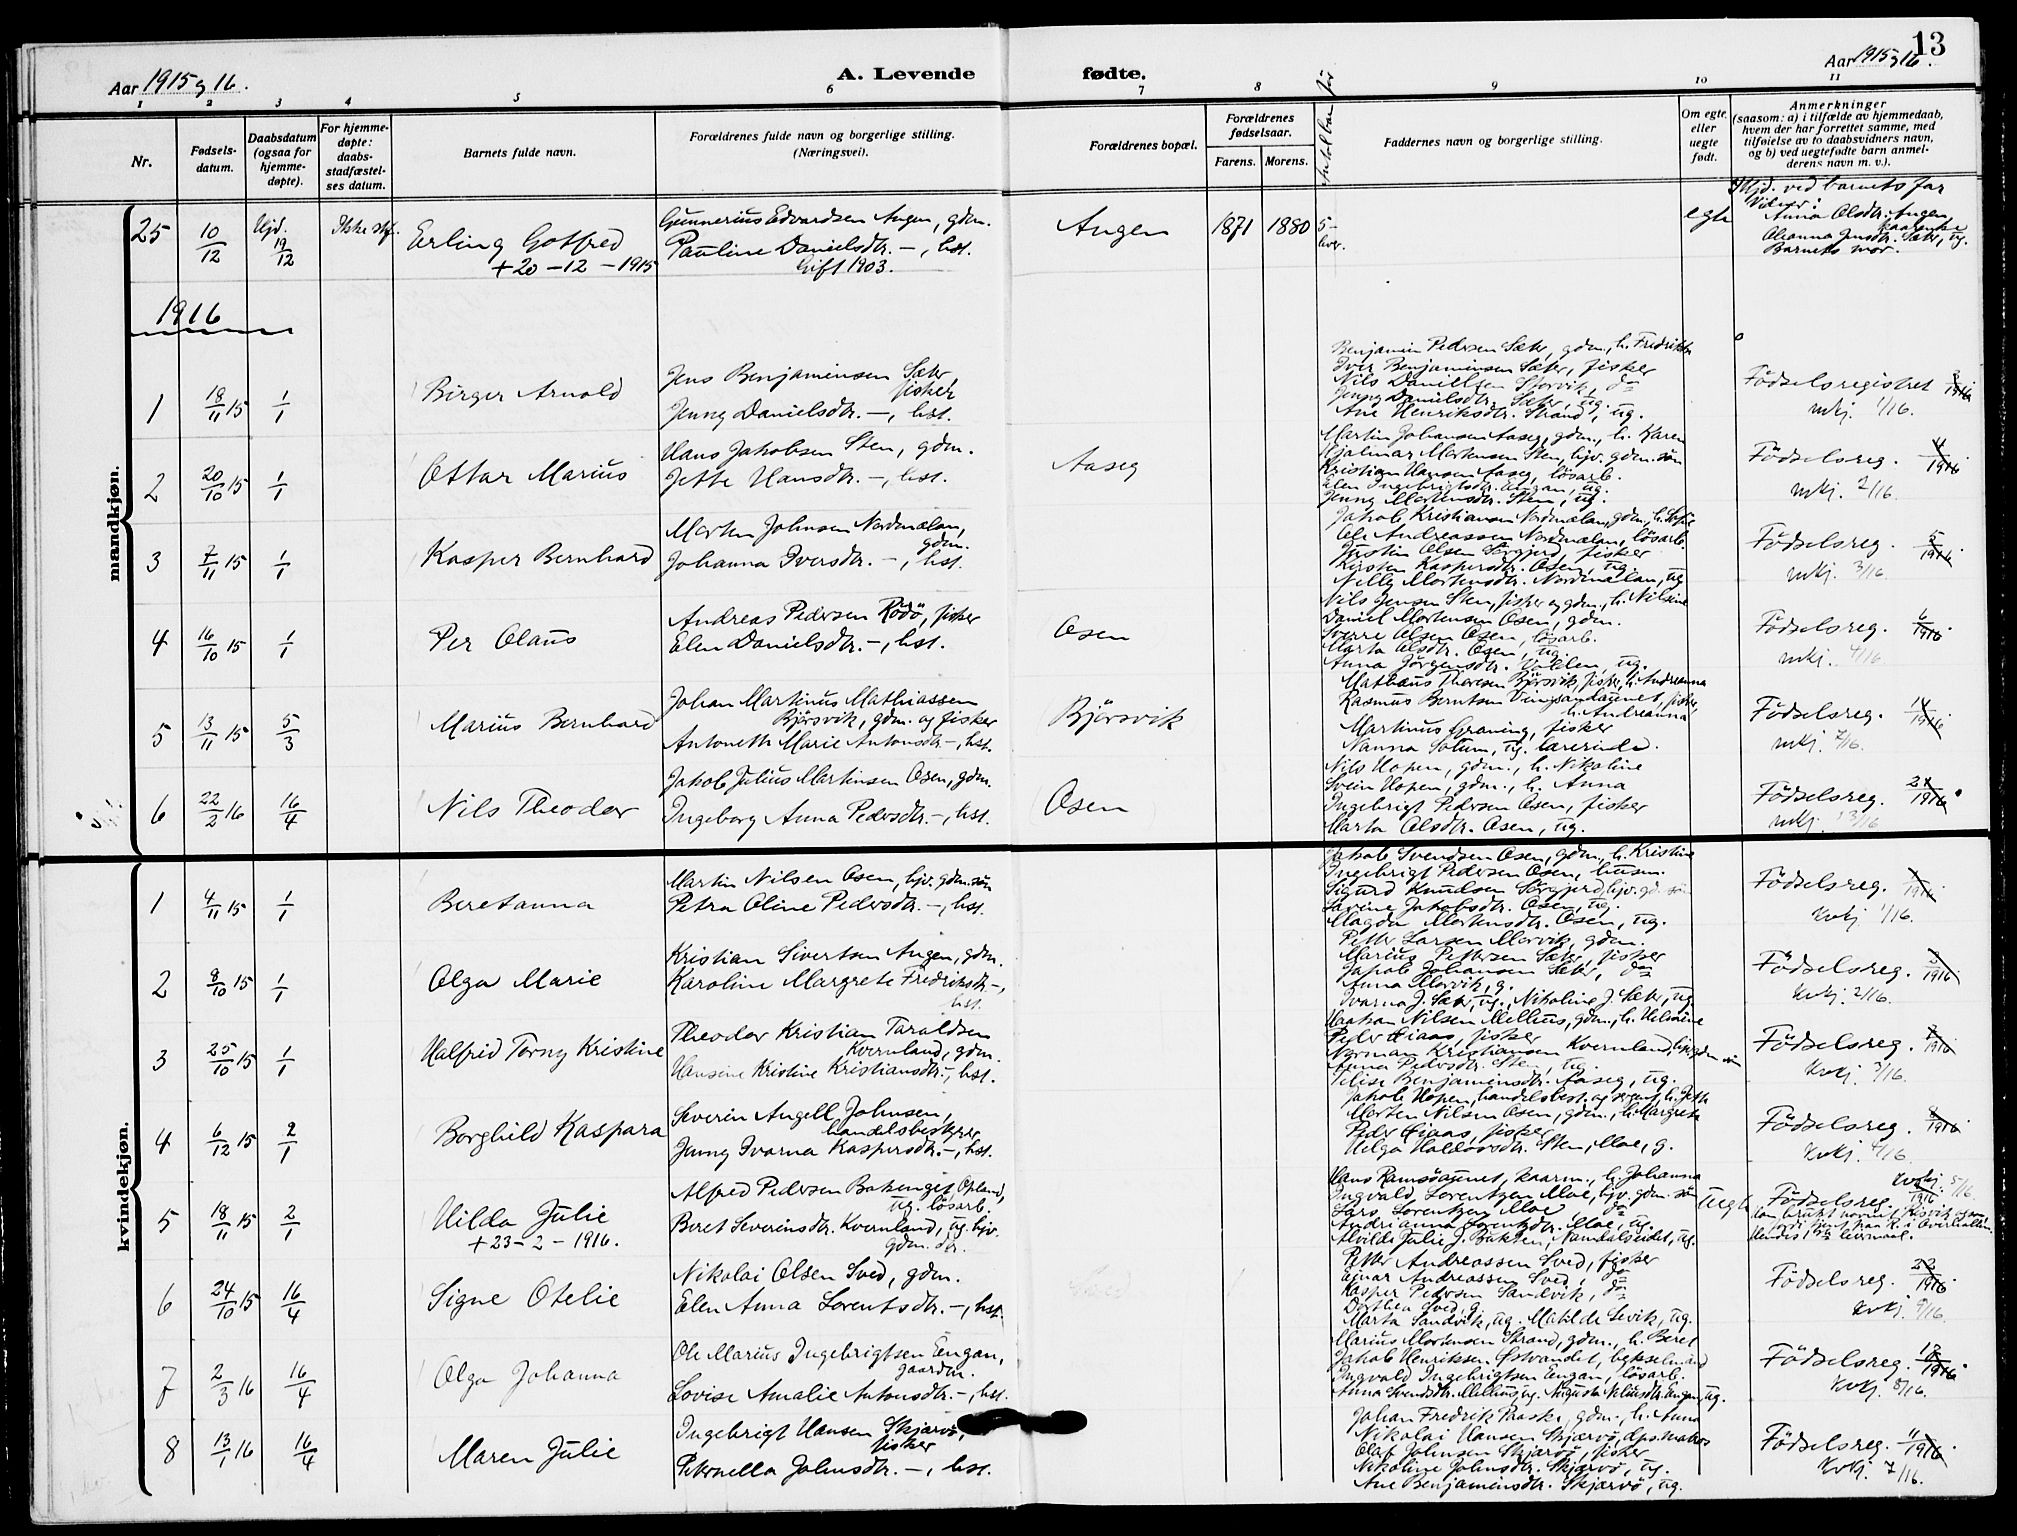 13
Aar 1915 og 16.
A. Levende
fødte.
Aar 1915 og 16.
1 2 3 4 5 6 7 8 9 10 11
Nr.
Fødsels-
datum.
Daabsdatum
(ogsaa for
hjemme-
døpte).
For hjemme-
døpte:
daabs-
stadfæstel-
ses datum.
Barnets fulde navn.
Forældrenes fulde navn og borgerlige stilling.
(Næringsvei).
Forældrenes bopæl.
Forældrenes
fødselsaar.
Farens. Morens.
Antal barn før
Faddernes navn og borgerlige stilling.
Om egte
eller
uegte
født.
Anmerkninger
(saasom: a) i tilfælde av hjemmedaab,
hvem der har forrettet samme, med
tilføielse av to daabsvidners navn,
og b) ved uegtefødte barn anmel-
derens navn m. v.).
mandkjøn.
25 10/12 Hjd. 19/12 Ikke stf.
Erling Gotfred
+ 20-12-1915
Gunnerius Edvardsen Angen, gdm.
Pauline Danielsdtr. —, hst.
Gift 1903.
Angen 1871 1880 5 -
egte
Hjd. ved barnets far
Vidner:
Anna Olsdtr. Angen
Barnets mor.
1916
1 18/11 15 1/1
Birger Arnold
Jens Benjaminsen Sæter
fisker
Jenny Danielsdtr. —, hst.
Benjamin Pedersen Sæter, gdm., h. Fredrikke
Iver Benjaminsen Sæter, fisker
Nils Danielsen Skjervik, do
Jenny Danielsdtr. Sæter, ug.
Ane Henriksdtr. Strand, ug.
Fødselsregistret 3/1916
mkj. 1/16.
2 20/10 15 1/1
Ottar Marius
Hans Jakobsen Sten, gdm.
Jette Hansdtr. —, hst.
Aaseg
Martin Johansen Aaseg, gdm., h. Karen
Hjalmar Mortensen Sten, hjv. gdm. søn
Kristian Hansen Aaseg, løsarb.
Elen Ingebrigtsdtr. Engan, ug.
Jenny Mortensdtr. Sten, ug.
Fødselsreg. 4/1916
mkj. 2/16.
3 7/11 15 1/1
Kasper Bernhard
Morten Johnsen Nordmelan,
gdm.
Johanna Iversdtr. —, hst.
Jakob Kristiansen Nordmelan, gdm., h. Sofie
Ole Andreassen Nordmelan, løsarb.
Justin Olsen Sørgjerd, fisker
Kirsten Kaspersdtr. Osen, ug.
Nelly Mortensdtr. Nordmelan, ug.
Fødselsreg. 5/1916.
mkj. 3/16.
4 16/10 15 1/1
Per Olaus
Andreas Pedersen Rödö, fisker
Elen Danielsdtr. —, hst.
Osen
Nils Jensen Sten, fisker og gdm., h. Nilsine
Daniel Mortensen Osen, gdm.
Sverre Olsen Osen, løsarb.
Marta Olsdtr. Osen, ug.
Anna Jørgensdtr. Vollen, ug.
Fødselsreg. 6/1916.
mkj. 4/16
5 13/11 15 5/3
Marius Bernhard
Johan Martinus Mathiassen
Bjørsvik, gdm. og fisker
Antonette Marie Antonsdtr. —, hst.
Bjørsvik
Mathæus Thoresen Bjørsvik, fisker, h. Andreanna
Rasmus Berntsen Vingsandaunet, fisker,
h. Andreanna
Martinus Grøning, fisker
Nanna Solum, ug. lærerinde.
Fødselsreg. 14/1916.
mkj. 7/16.
6 22/2 16 16/4
Nils Theodor
Jakob Julius Martinsen Osen, gdm.
Ingeborg Anna Pedersdtr. —, hst.
Osen
Nils Hopen, gdm., h. Nikoline
Svein Hopen, gdm., h. Anna
Ingebrigt Pedersen Osen, fisker
Marta Olsdtr. Osen, ug.
Fødselsreg. 21/1916
mkj. 13/16
kvindekjøn.
1 4/11 15 1/1
Beretanna
Martin Nilsen Osen, hjv. gdm. søn
Petra Oline Pedersdtr. —, hst.
Jakob Svendsen Osen, gdm., h. Kristine
Ingebrigt Pedersen Osen, husm.
Sigurd Knudsen Sørgjerd, hjv. gd. søn
Lavine Jakobsdtr. Osen, ug.
Magda Mortensdtr. Osen, ug.
Fødselsreg. 1/1916.
kvkj. 1/16.
2 8/10 15 1/1
Olga Marie
Kristian Sivertsen Angen, gdm.
Karoline Margrete Fredriksdtr. —,
hst.
Petter Larsen Morvik, gdm.
Marius Pettersen Sæter, fisker
Jakob Johansen Sæter, do
Anna Morvik, g.
Ivarna J. Sæter, ug., Nikoline J. Sæter, ug.
Fødselsreg. 3/1916.
kvkj. 2/16.
3 25/10 15 1/1
Halfrid Torny Kristine
Theodor Kristian Taraldsen
Kvernland, gdm.
Hansine Kristine Kristiansdtr. —, hst.
Haakon Nilsen Mellius, gdm., h. Helmine
Peder Hiaas, fisker
Norman Kristiansen Kvernland, hjv. gdm. søn
Anna Pedersdtr. Sten, ug.
Telise Benjaminsdtr. Aaseg, ug.
Fødselsreg. 2/1916.
kvkj. 3/16.
4 6/12 15 2/1
Borghild Kaspara
Severin Angell Johnsen,
handelsbestyrer
Jenny Ivarna Kaspersdtr. —, hst.
Jakob Hopen, handelsbest. og agent, h. Jette
Morten Nilsen Osen, gdm., h. Margrete
Peder Hiaas, fisker
Helga Haldorsdtr. Sten, Moe, g.
Fødselsreg. 8/1916.
kvkj. 4/16.
5 18/11 15 2/1
Hilda Julie
+ 23-2-1916.
Alfred Pedersen Bakenget, Opland,
ug. løsarb.
Beret Severinsdtr. Kvernland, ug. hjv.
gdm. dtr.
Hans Ramsøaunet, kaarm., h. Johanna
Ingvald Lorentzen Moe, hjv. gdm. søn
Lars Lorentzen Moe do
Andrianna Lorentzdtr. Moe, ug.
Alvilde Julie J. Bakken, Namdalseidet, ug.
uegte
kvkj. 5/16.
Fødselsreg.
6 24/10 15 16/4
Signe Otelie
Nikolai Olsen Sved, gdm.
Elen Anna Lorentsdtr. —, hst.
Petter Andreassen Sved, fisker
Einar Andreassen Sved, do
Kasper Pedersen Sandvik, do
Dorthea Sved, g.
Marta Sandvik, ug. Matilde Sevik, ug.
Fødselsreg. 22/1916.
kvkj. 9/16
7 2/3 16 16/4
Olga Johanna
Ole Marius Ingebrigtsen Engan,
gaardm.
Lovise Amalie Antonsdtr. —, hst.
Marius Mortensen Strand, gdm., h. Beret
Jakob Henriksen Østvandet, bykselmand
Ingvald Ingebrigtsen Engan, løsarb.
Fødselsreg. 12/1916.
kvkj. 8/16.
8 13/1 16 16/4
Maren Julie
Ingebrigt Hansen Skjærvø,
fisker
Peternella Johnsdtr. —, hst.
Johan Fredrik Paaske, gdm., h. Anna
Nikolai Hansen Skjærvø, dps. matros
Olaf Johnsen Skjærvø, fisker
Nikoline Johnsdtr. Skjærvø, ug.
Ane Benjaminsdtr. Skjærvø, ug.
Fødselsreg. 11/1916.
kvkj. 7/16.